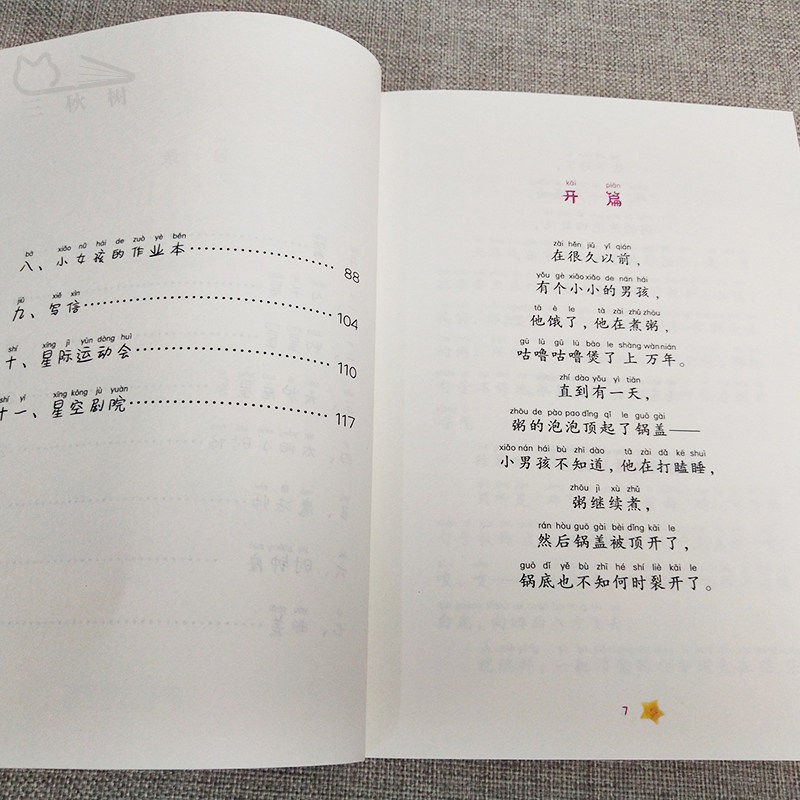 三秋树
bā xiǎo nǚ hái de zuò yè běn
八、小女孩的作业本 88
jiǔ xiě xìn
九、写信 104
shí xīng jì yùn dòng huì
十、星际运动会 110
shí yī xīng kōng jù yuàn
十一、星空剧院 117
kāi piān
开 篇
zài hěn jiǔ yǐ qián
在很久以前，
yǒu gè xiǎo xiǎo de nán hái
有个小小的男孩，
tā è le tā zài zhǔ zhōu
他饿了，他在煮粥，
gū lū gū lū bāo le shàng wàn nián
咕噜咕噜煲了上万年。
zhí dào yǒu yì tiān
直到有一天，
zhōu de pào pao dǐng qǐ le guō gài
粥的泡泡顶起了锅盖——
xiǎo nán hái bù zhī dào tā zài dǎ kē shuì
小男孩不知道，他在打瞌睡，
zhōu jì xù zhǔ
粥继续煮，
rán hòu guō gài bèi dǐng kāi le
然后锅盖被顶开了，
guō dǐ yě bù zhī hé shí liè kāi le
锅底也不知何时裂开了。
7